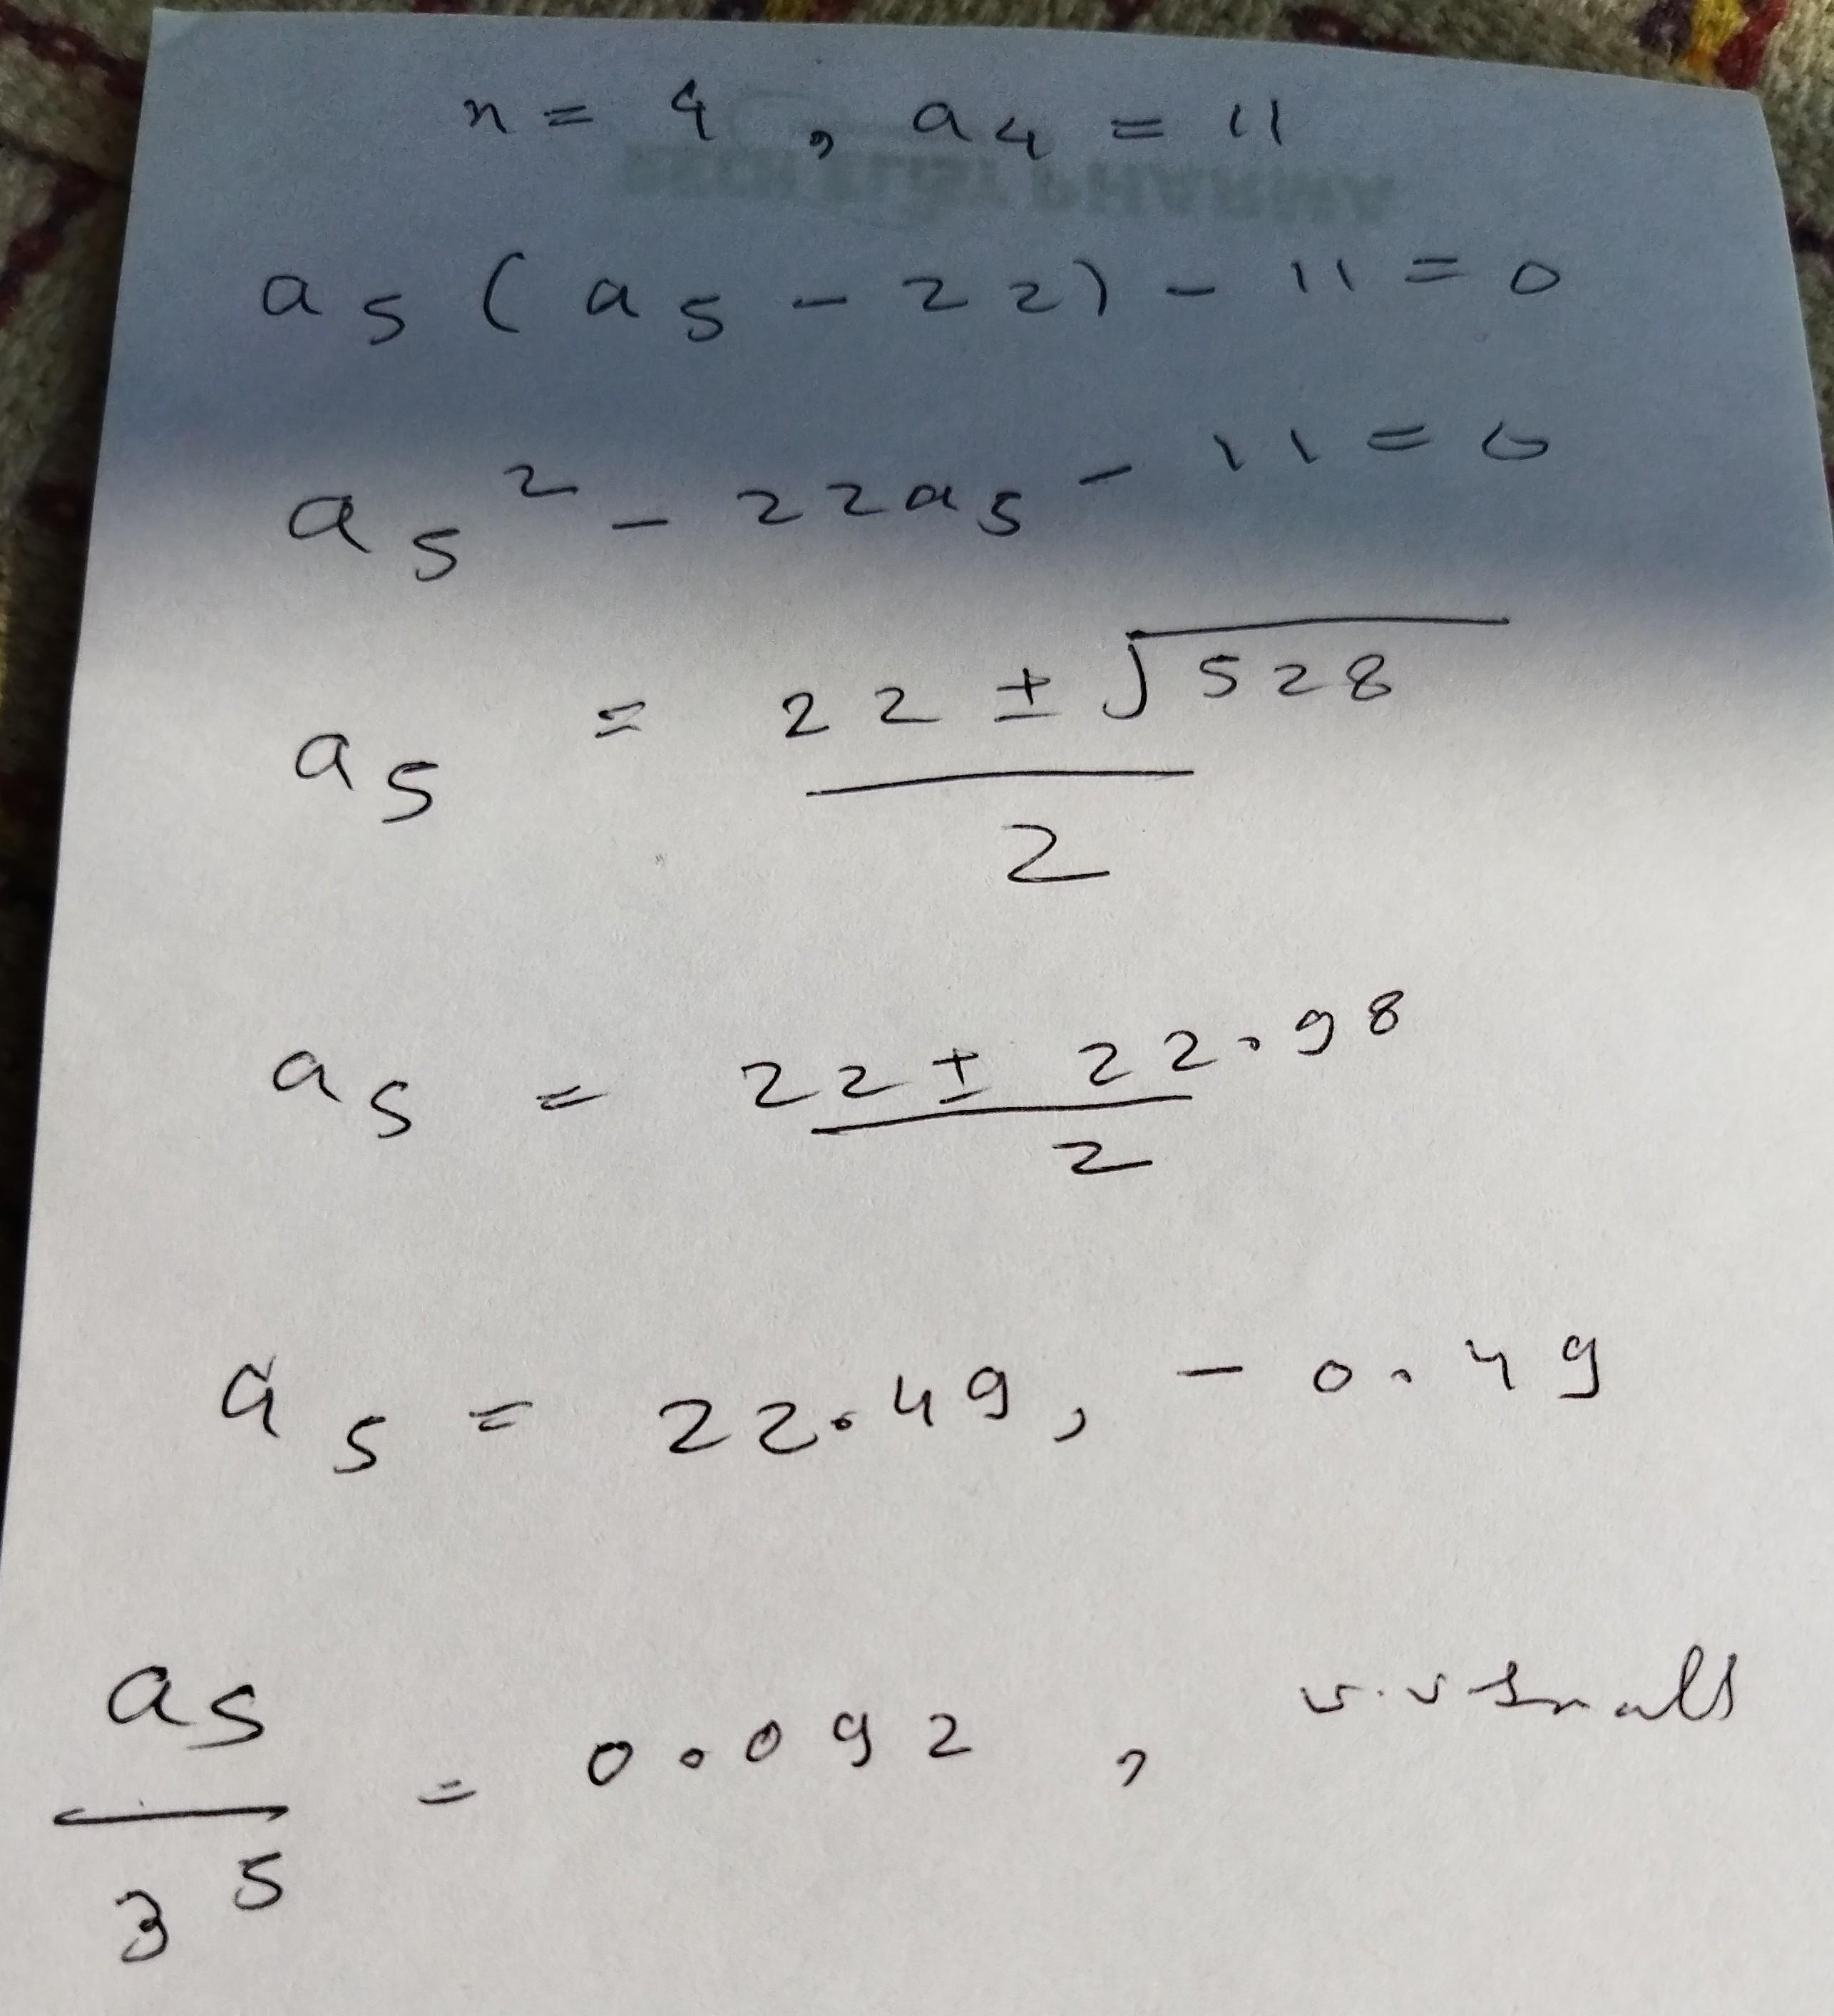 n = 4, a₄ = 11
a₅ ( a₅ - 22) - 11 = 0
a₅² - 22a₅ - 11 = 0
a₅ = 22 ± √528
2
a₅ = 22 ± 22.98
2
a₅ = 22.49, - 0.49
a₅
= 0.092, v.v small
3⁵